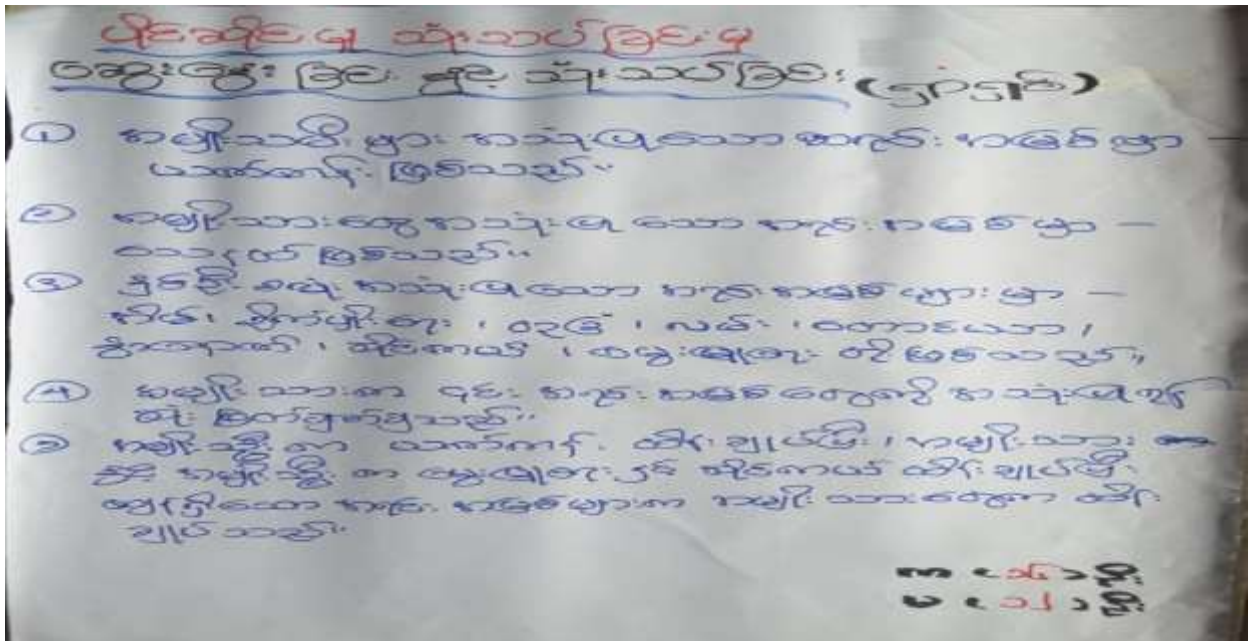 ပိုင်ဆိုင်မှု သုံးသပ်ခြင်းမှ
ဆွေးနွေးခြင်း နှင့် သုံးသပ်ခြင်း
① အမျိုးသမီးများ အသုံးပြုသော အရင်းအမြစ်မှာ –
ဖြစ်သည်။
② အမျိုးသားတွေအသုံးပြုသော အရင်းအမြစ်မှာ –
သေနတ်ဖြစ်သည်။
③ နှစ်ဦးစလုံးအသုံးပြုသော အရင်းအမြစ်များမှာ –
အိမ်၊ စိုက်ပျိုးရေး၊ လမ်း၊ တောင်ယာ၊
ဆိုင်ကယ်၊ မွေးမြူရေး တို့ဖြစ်သည်။
④ အမျိုးသားက ၎င်း အရင်းအမြစ်တွေကို အသုံးပြုရန်
ဆုံးဖြတ်ချက်ချသည်။
⑤ အမျိုးသမီးက ထိန်းချုပ်ပြီး၊ အမျိုးသား
နှင့် အမျိုးသမီးက မွေးမြူရေးနှင့် ဆိုင်ကယ် ထိန်းချုပ်ပြီး
ကျန်ရှိသော အရင်းအမြစ်များက အမျိုးသားတွေက ထိန်း
ချုပ်သည်။